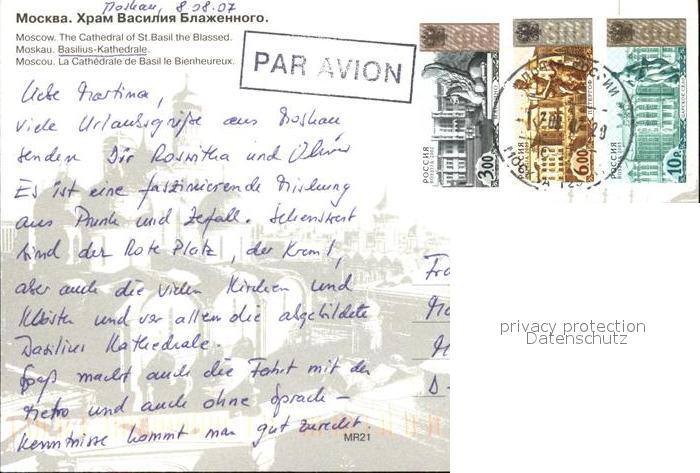 Moskau, 8.08.07
Москва. Храм Василия Блаженного.
Moscow. The Cathedral of St.Basil the Blassed.
Moskau. Basilius-Kathedrale.
Moscou. La Cathédrale de Basil le Bienheureux.
PAR AVION
РОССИЯ 3.00
РОССИЯ 6.00 ПЕТЕРГОФ
РОССИЯ 10
Liebe Martina,
viele Urlaubsgrüße aus Moskau
senden Dir Roswitha und Oliver
Es ist eine faszinierende Mischung
aus Prunk und Zerfall. Sehenswert
sind der Rote Platz, der Kreml,
aber auch die vielen Kirchen und
Klöster und vor allem die abgebildete
Basilius Kathedrale.
Spaß macht auch die Fahrt mit der
Metro und auch ohne Sprach-
kenntnisse kommt man gut zurecht.
MR21
Fra
D-
privacy protection
Datenschutz